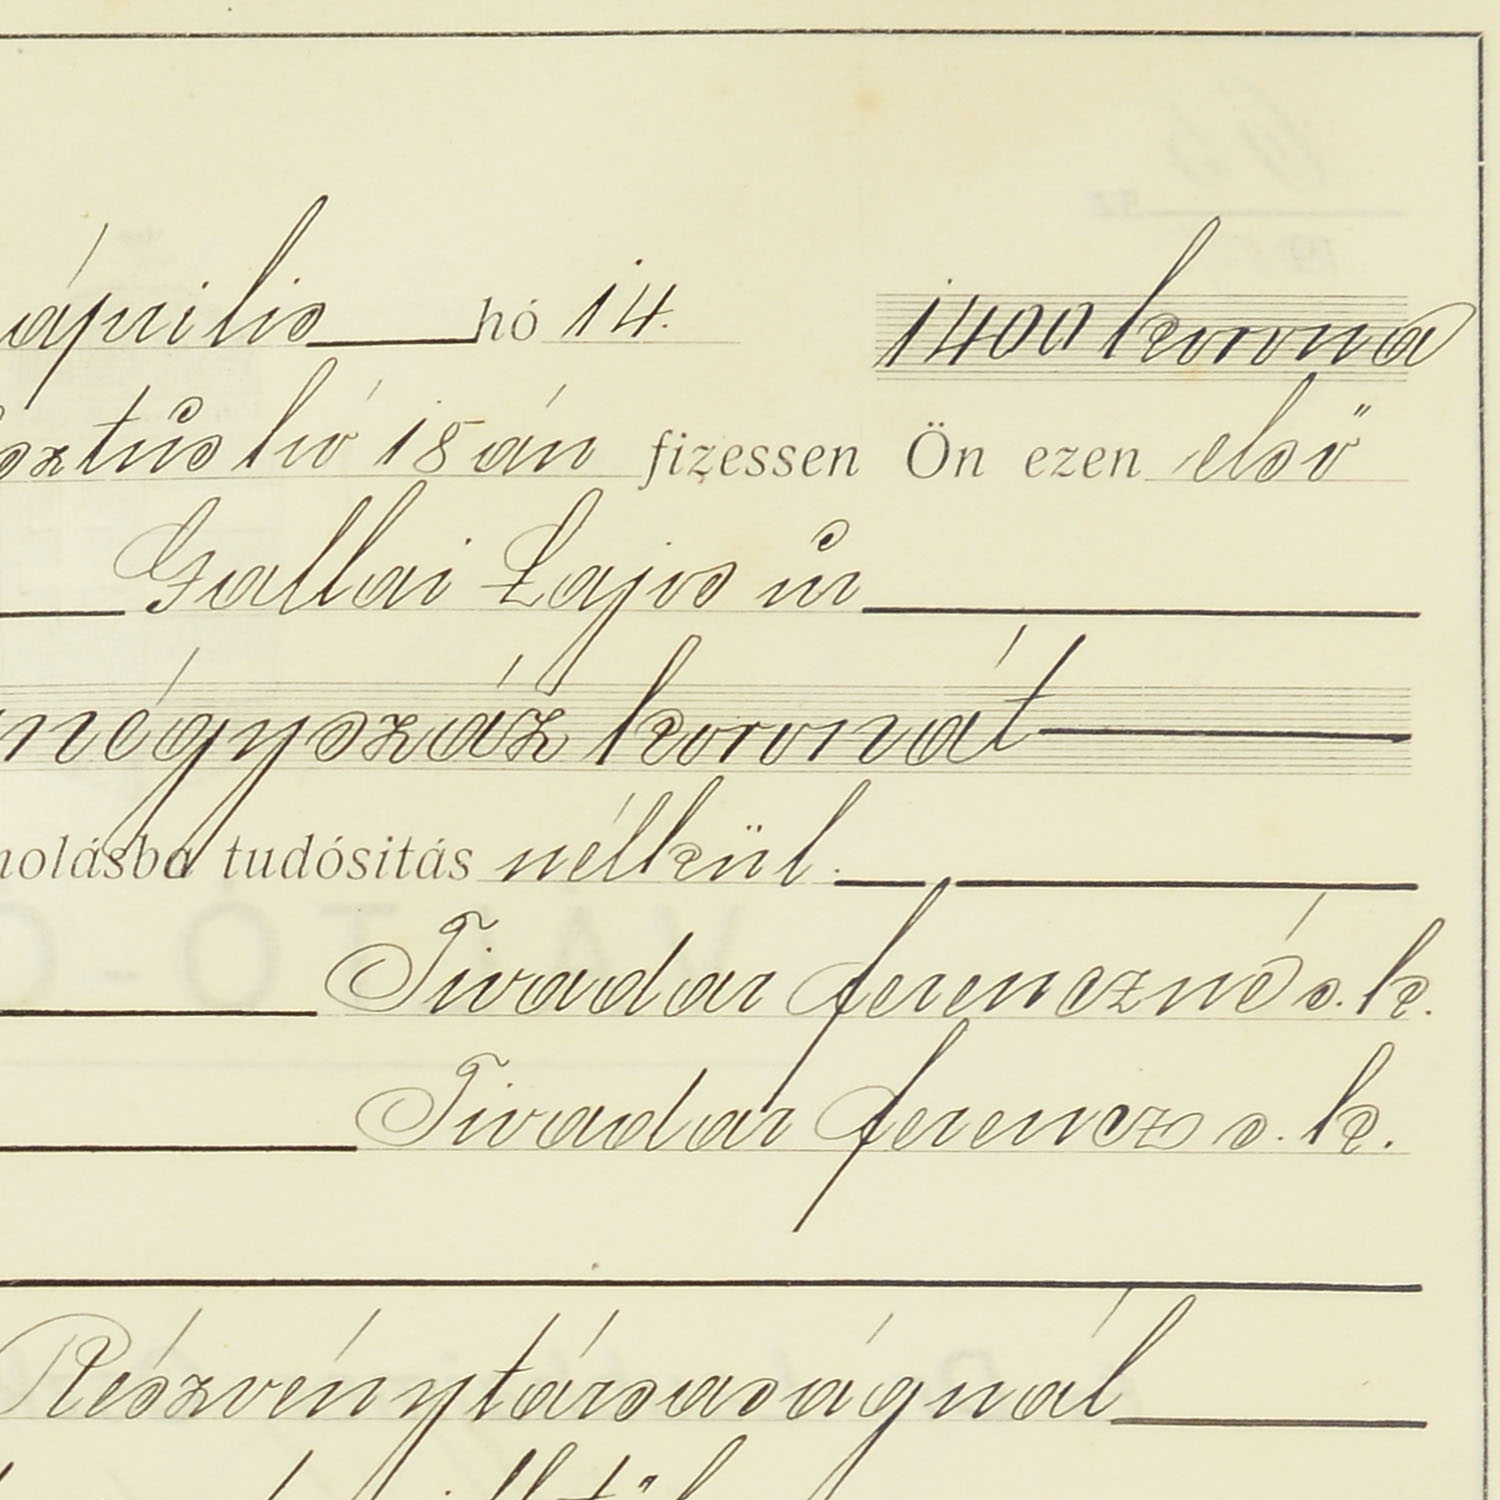 április hó 14. 1400 korona
sztus hó 15 án fizessen Ön ezen első
Gallai Lajos úr
négyszáz koronát
molásba tudósitás nélkül.
Tivadar Ferenczné s. k.
Tivadar Ferencz s. k.
Részvénytársaságnál